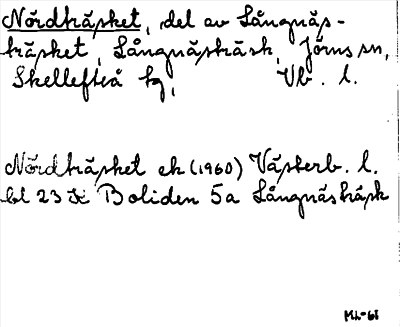 Nördträsket, del av Långnäs-
träsket, Långnästräsk, Jörns sn,
Skellefteå tg, Vb. l.
Nördträsket ek (1960) Västerb. l.
bl 23 K Boliden 5a Långnästräsk